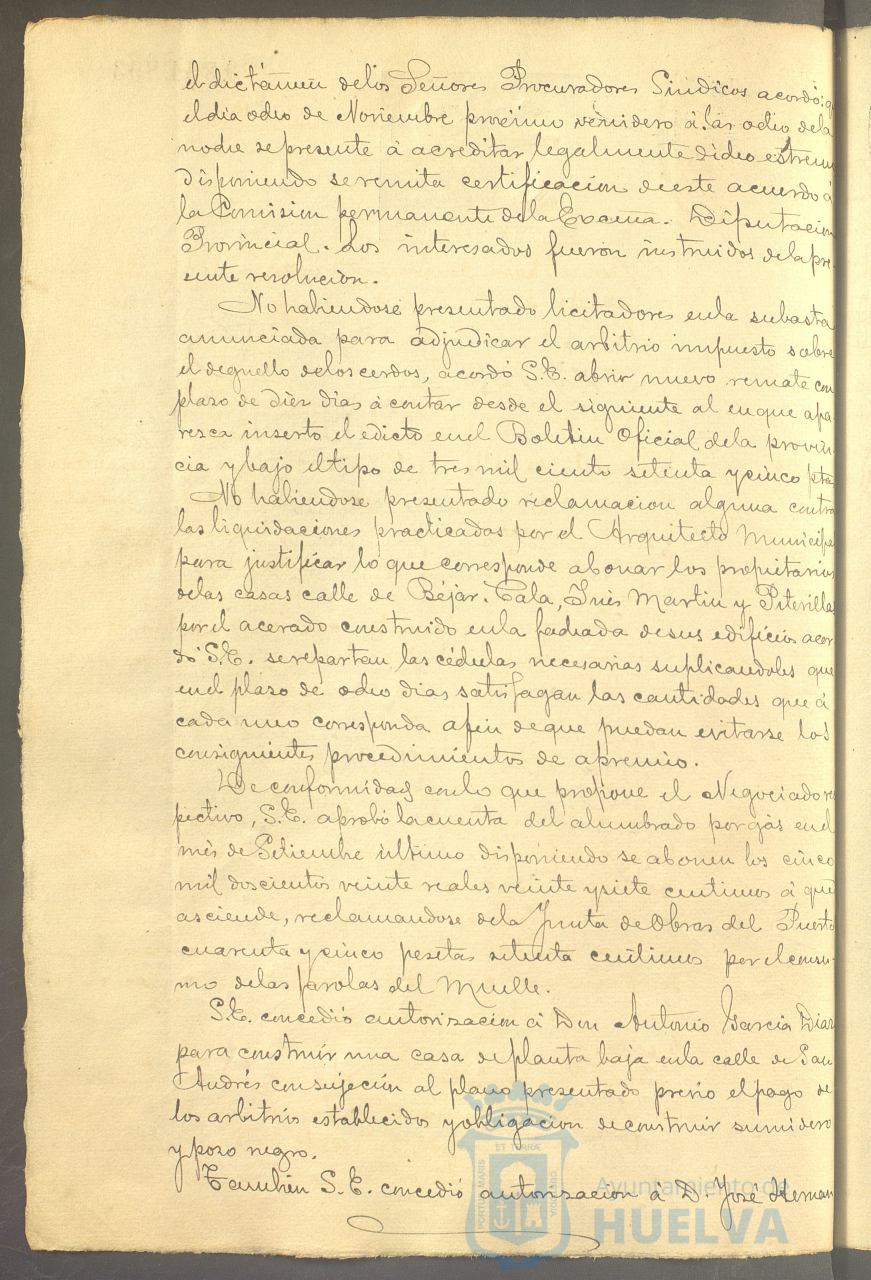 el dictámen de los Señores Procuradores Sindicos acordó: q
el dia ocho de Noviembre proximo venidero á las ocho de la
noche se presente á acreditar legalmente dicho estremo
disponiendo se remita certificacion de este acuerdo á
la Comision permanente de la Excma. Diputacion
Provincial. Los interesados fueron instruidos de la pre-
sente resolucion.
No habiendose presentado licitadores en la subasta
anunciada para adjudicar el arbitrio impuesto sobre
el deguello de los cerdos, acordó S.E. abrir nuevo remate con
plazo de diez dias á contar desde el siguiente al en que apa-
resca inserto el edicto en el Boletin Oficial de la provin-
cia y bajo el tipo de tres mil ciento setenta y cinco ptas
No habiendose presentado reclamacion alguna contra
las liquidaciones practicadas por el Arquitecto Municipal
para justificar lo que corresponde abonar los propietarios
de las casas calle de Béjar, Cala, Inés Martin y Puterillas
por el acerado construido en la fachada de sus edificios acor
dó S.E. se repartan las cédulas necesarias suplicandoles que
en el plazo de ocho dias satisfagan las cantidades que á
cada uno corresponda a fin de que puedan evitarse los
consiguientes procedimientos de apremio.
De conformidad con lo que propone el Negociado res
pectivo, S.E. aprobó la cuenta del alumbrado por gas en el
mes de Setiembre último disponiendo se abonen los cinco
mil doscientos veinte reales veinte y siete centimos á que
asciende, reclamandose de la Junta de Obras del Puerto
cuarenta y cinco pesetas setenta centimos por el consu-
mo de las farolas del Muelle.
S.E. concedió autorizacion á Don Antonio Garcia Diaz
para construir una casa de planta baja en la calle de San
Andrés con sujecion al plano presentado previo el pago de
los arbitrios establecidos y obligacion de construir sumidero
y pozo negro.
Tambien S.E. concedió autorizacion á D. José Hernan
ET TERRAE
PORTUS MARIS
CUSTODIA
Ayuntamiento de
HUELVA